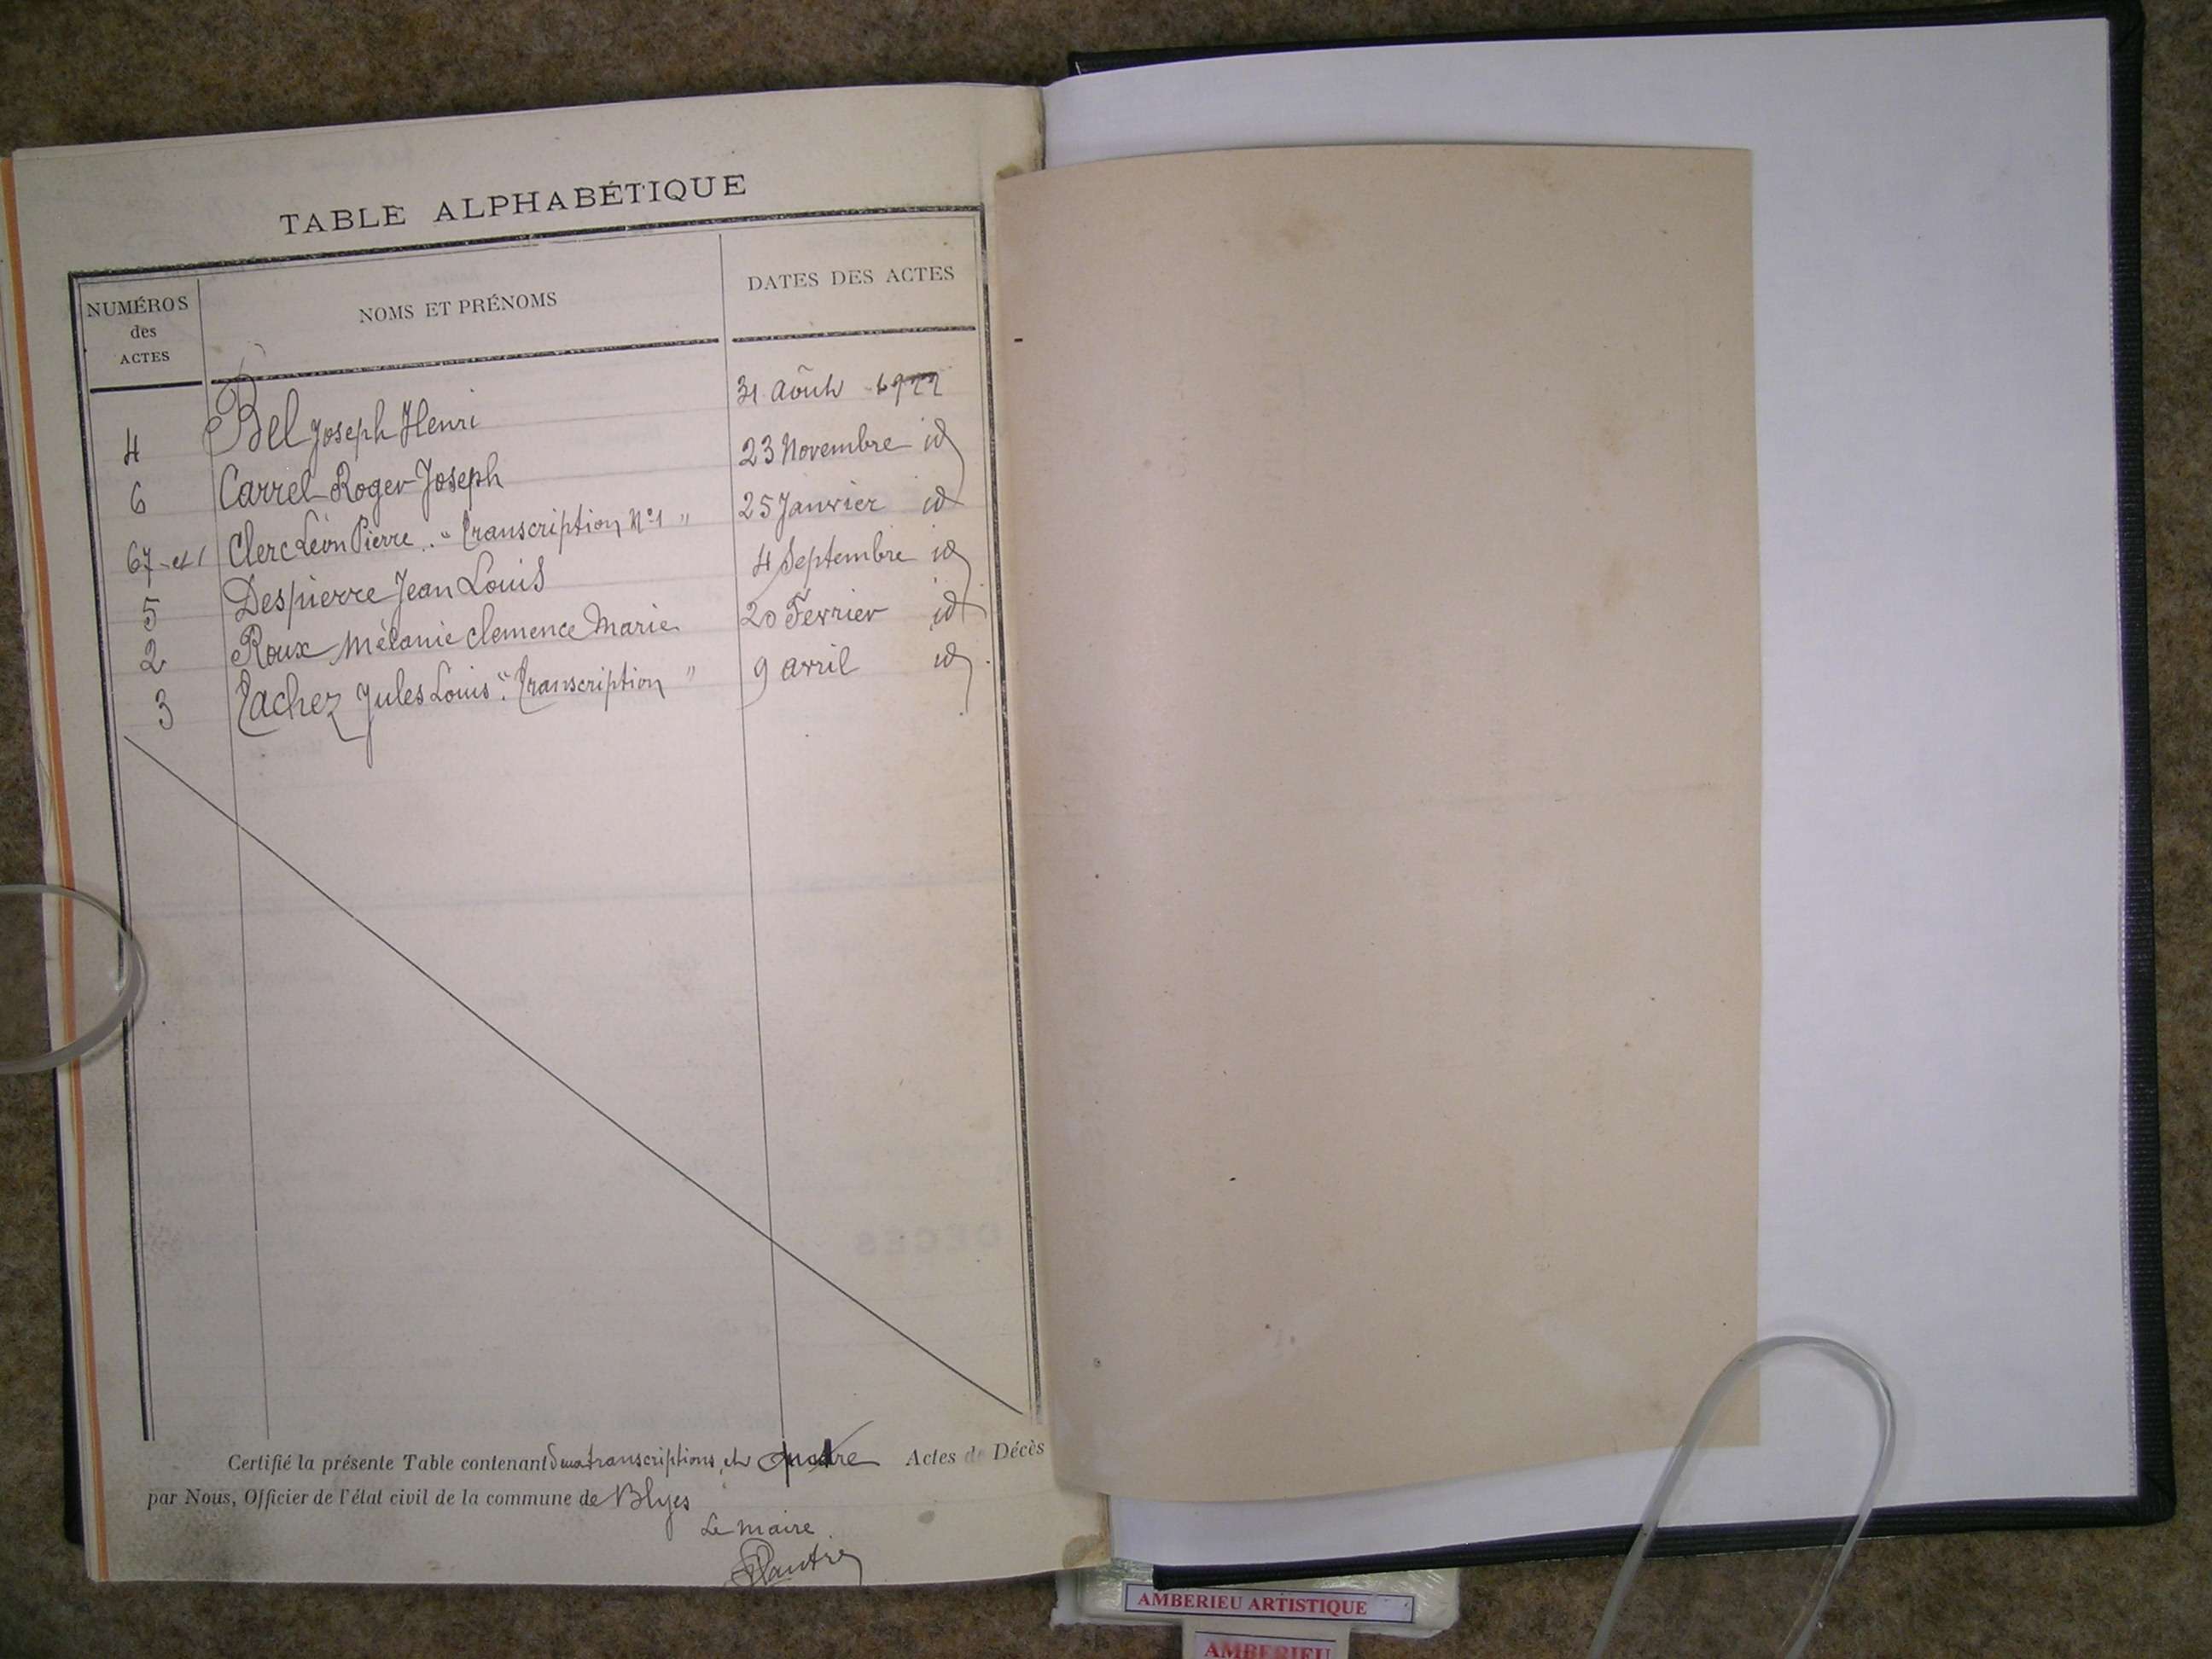 TABLE ALPHABÉTIQUE
NUMÉROS des ACTES
NOMS ET PRÉNOMS
DATES DES ACTES
4 Bel Joseph Henri 31 Août 1922
6 Carrel Roger Joseph 23 Novembre id
67 et 1 Clerc Léon Pierre .. " Transcription N°1 " 25 Janvier id
5 Despierre Jean Louis 4 Septembre id
2 Roux Mélanie Clemence Marie 20 Février id
3 Tachez Jules Louis " Transcription " 9 avril id
Certifié la présente Table contenant deux transcriptions, et quatre Actes de Décès
par Nous, Officier de l'état civil de la commune de Blyes
Le Maire
AMBERIEU ARTISTIQUE
AMBERIEU